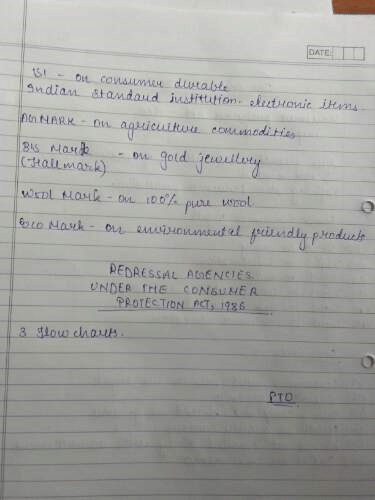 DATE:
ISI - on consumer durable
Indian Standard institution. electronic items
AGMARK - on agriculture commodities
BIS Mark - on gold jewellery
(Hallmark)
Wool Mark - on 100% pure wool
Eco Mark - on environmental friendly products
REDRESSAL AGENCIES
UNDER THE CONSUMER
PROTECTION ACT, 1986
3 Flow charts.
PTO